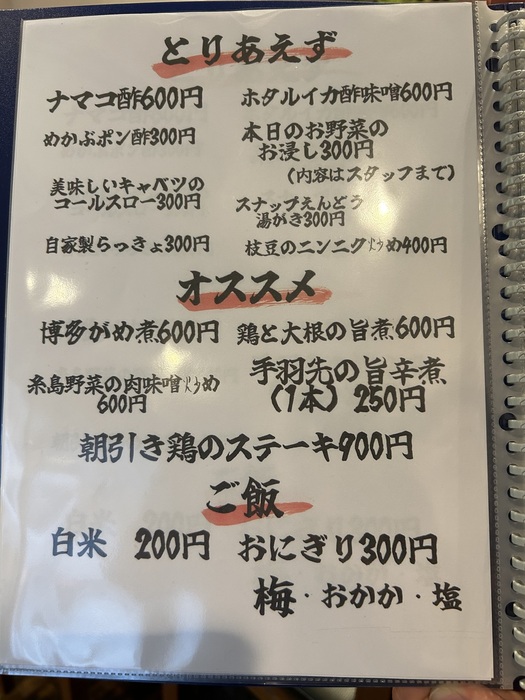 とりあえず
ナマコ酢600円
ホタルイカ酢味噌600円
めかぶポン酢300円
本日のお野菜の
お浸し300円
(内容はスタッフまで)
美味しいキャベツの
コールスロー300円
スナップえんどう
湯がき300円
自家製らっきょ300円
枝豆のニンニク炒め400円
オススメ
博多がめ煮600円
鶏と大根の旨煮600円
糸島野菜の肉味噌炒め
600円
手羽先の旨辛煮
(1本) 250円
朝引き鶏のステーキ900円
ご飯
白米 200円
おにぎり300円
梅・おかか・塩